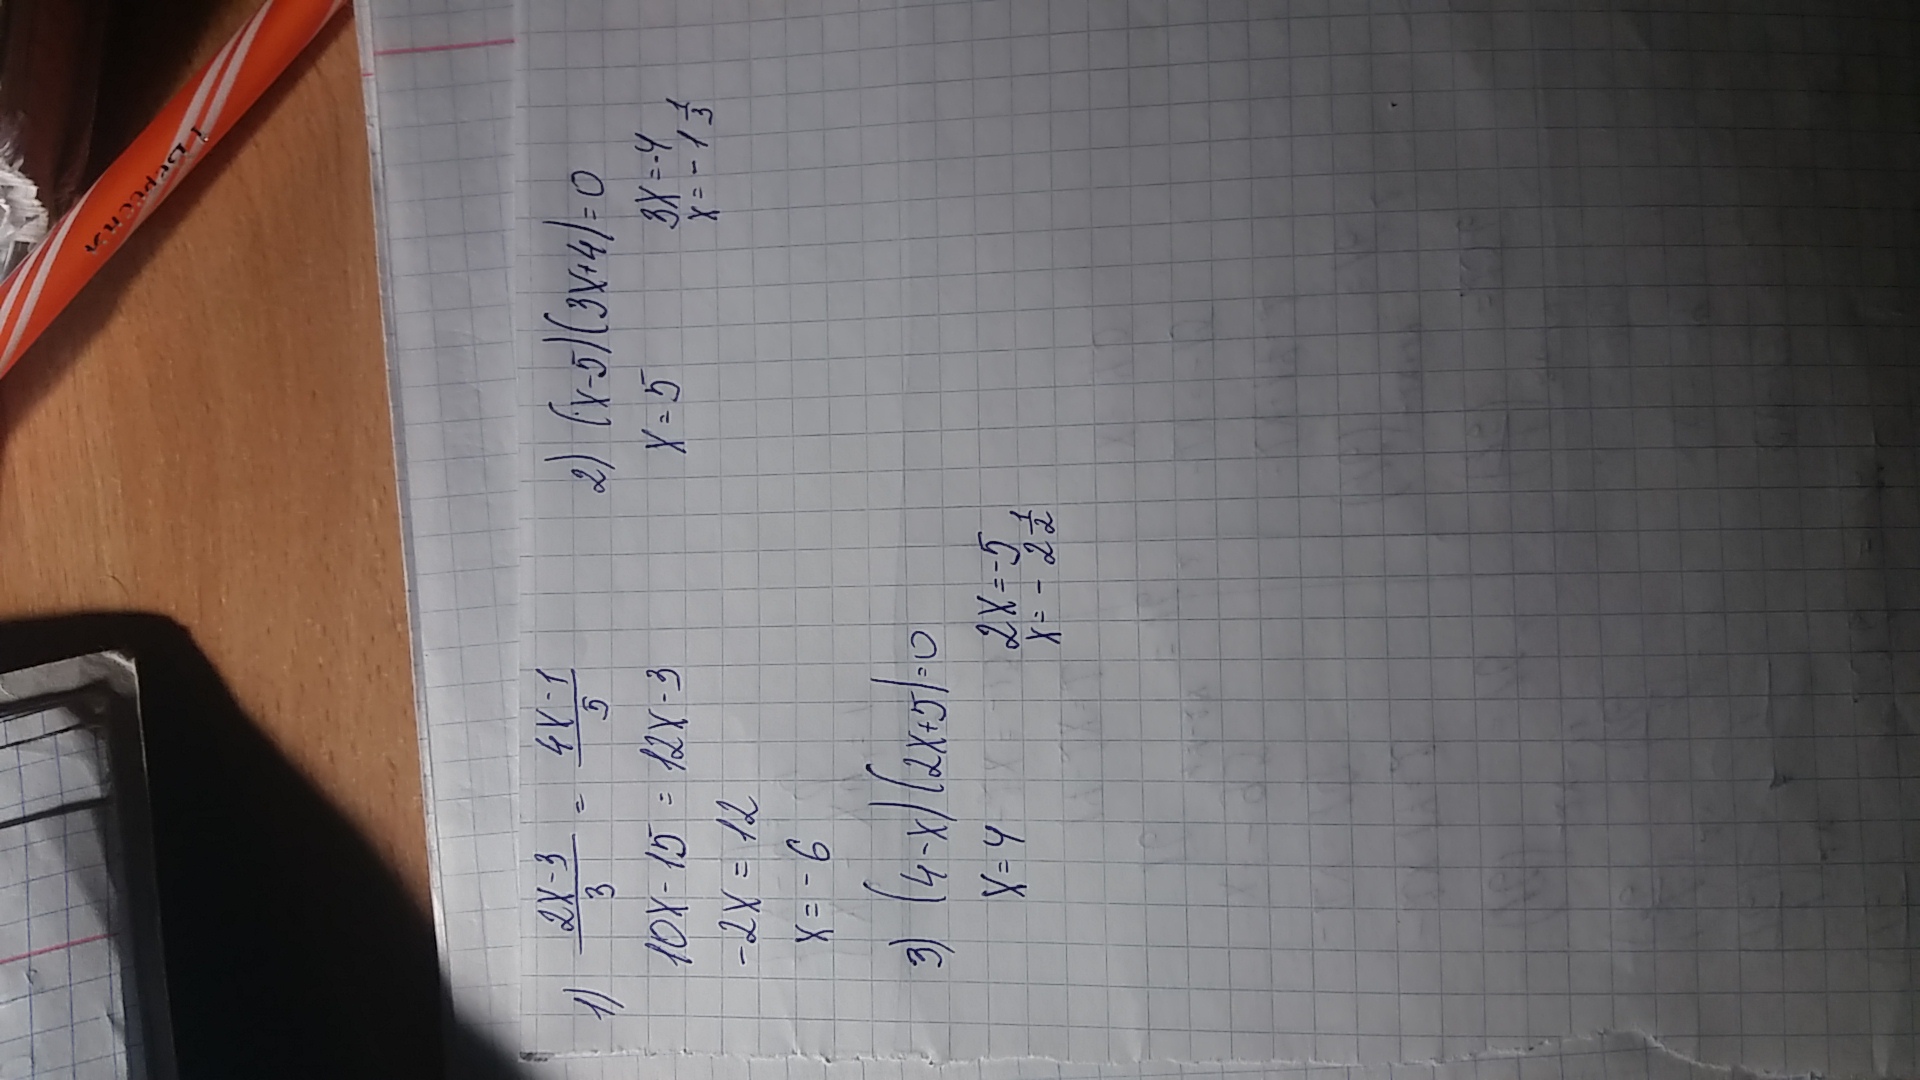 1) (2x-3)/3 = (4x-1)/5
10x-15 = 12x-3
-2x = 12
x = -6
2) (x-5)(3x+4)=0
x = 5    3x=-4
x = -1 1/3
3) (4-x)(2x+5)=0
x=4    2x=-5
x = -2 1/2
1 Вересня